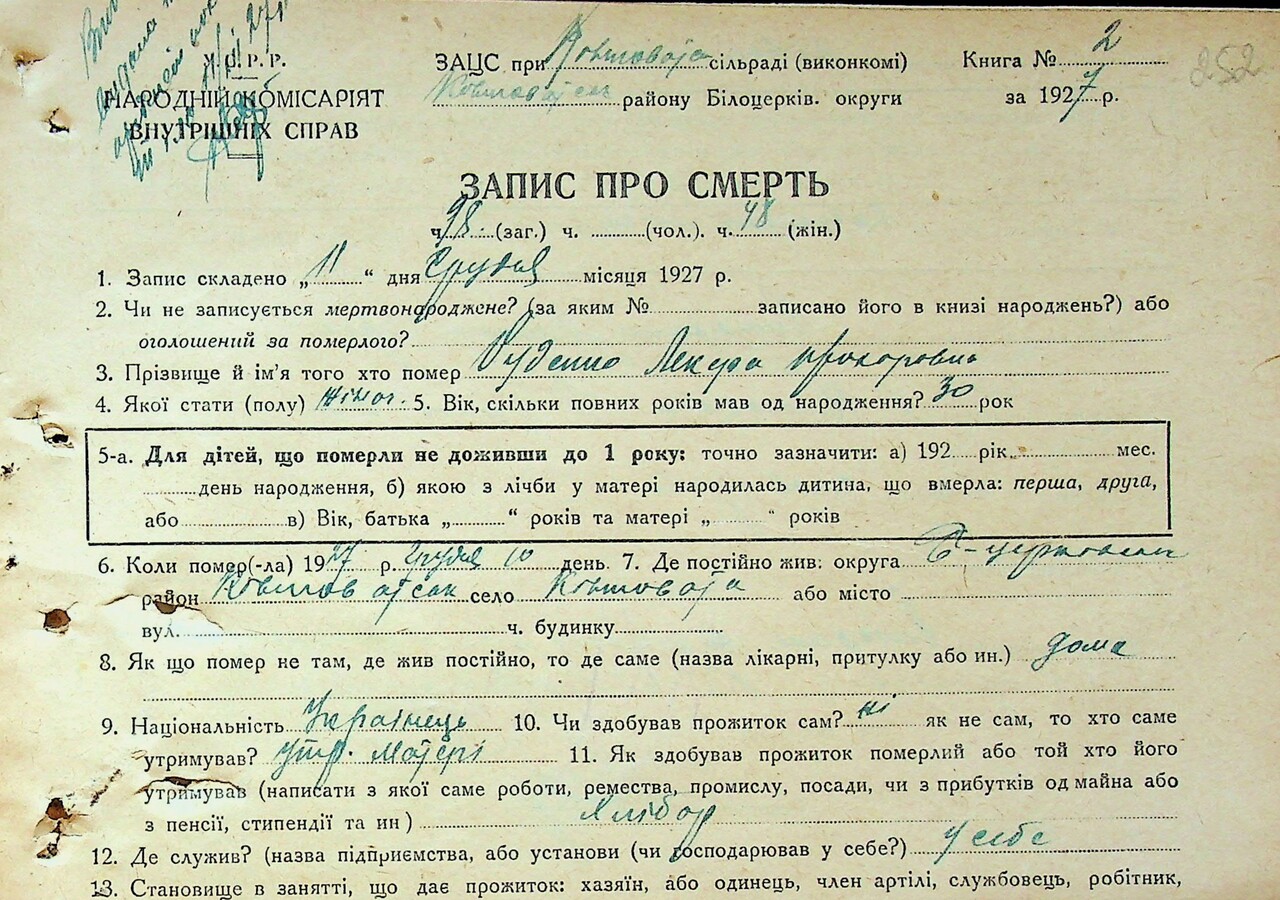 У.С.Р.Р.
НАРОДНІЙ КОМІСАРІЯТ
ВНУТРІШНІХ СПРАВ
ЗАЦС при Ковшовата сільраді (виконкомі) Книга № 2
районy Білоцерків. округи за 1927 р.
252
ЗАПИС ПРО СМЕРТЬ
ч. 98 (заг.) ч. (чол.). ч. 48 (жін.)
1. Запис складено „ 11 “ дня Грудня місяця 1927 р.
2. Чи не записується мертвонароджене? (за яким № записано його в книзі народжень?) або
оголошений за померлого?
3. Прізвище й ім'я того хто помер Руденко Прохоровна
4. Якої стати (полу) жіноч. 5. Вік, скільки повних років мав од народження? 30 рок
5-а. Для дітей, що померли не доживши до 1 року: точно зазначити: а) 192 рік, мес.
день народження, б) якою з лічби у матері народилась дитина, що вмерла: перша, друга,
або в) Вік, батька „ “ років та матері „ “ років
6. Коли помер(-ла) 1927 р. Грудня 10 день. 7. Де постійно жив: округа Б-церковськ
район село Ковшовата або місто
вул. ч. будинку
8. Як що помер не там, де жив постійно, то де саме (назва лікарні, притулку або ин.) дома
9. Національність Українець 10. Чи здобував прожиток сам? ні як не сам, то хто саме
утримував? утр. матері 11. Як здобував прожиток померлий або той хто його
утримував (написати з якої саме роботи, ремества, промислу, посади, чи з прибутків од майна або
з пенсії, стипендії та ин) хлібор
12. Де служив? (назва підприємства, або установи (чи господарював у себе?) у себе
13. Становище в занятті, що дає прожиток: хазяїн, або одинець, член артілі, службовець, робітник,